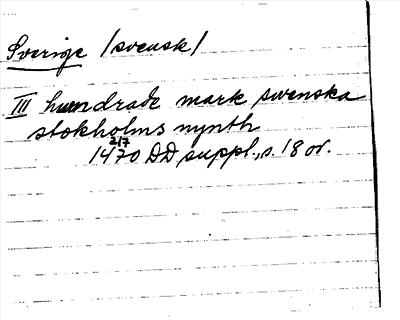 Sverige /svensk/
III hundrade mark swenska
stokholms mynth
2/7
1470 DD suppl., s. 18 or.